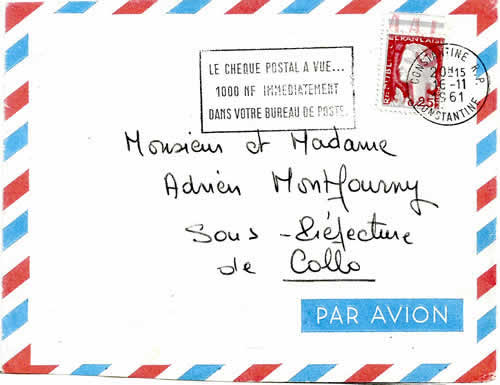 LE CHEQUE POSTAL A VUE...
1000 NF IMMEDIATEMENT
DANS VOTRE BUREAU DE POSTE
REPUBLIQUE FRANCAISE
0,25
CONSTANTINE R.P.
20H15
16-11
1961
CONSTANTINE
Monsieur et Madame
Adrien Montfourny
Sous-Préfecture
de Collo
PAR AVION